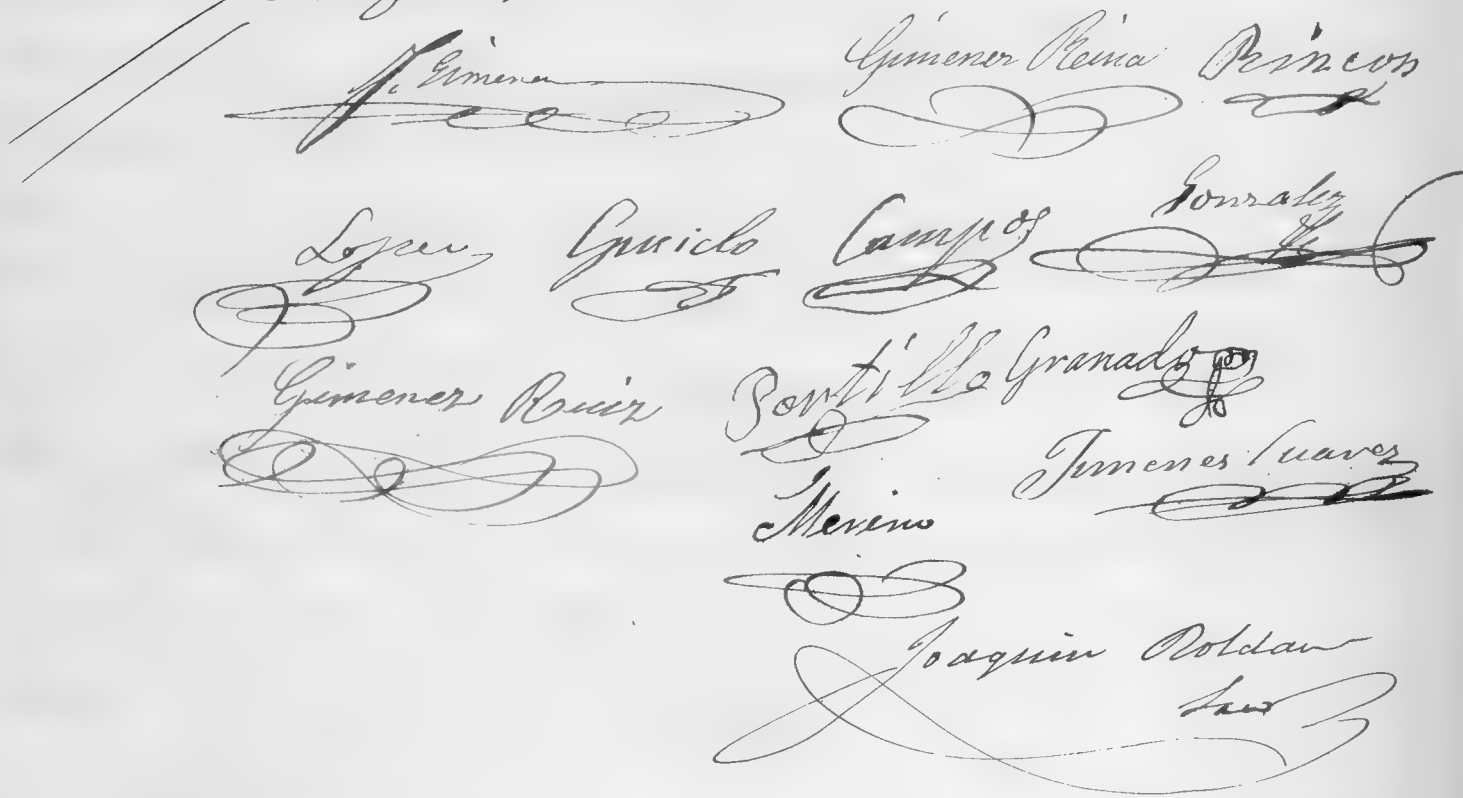 J. Gimenez Gimenez Reina Rincon
Lopez Guiclo Campos Gonzalez
Gimenez Ruiz Portillo Granados
Jimenes Suarez
Merino
Joaquin Roldan